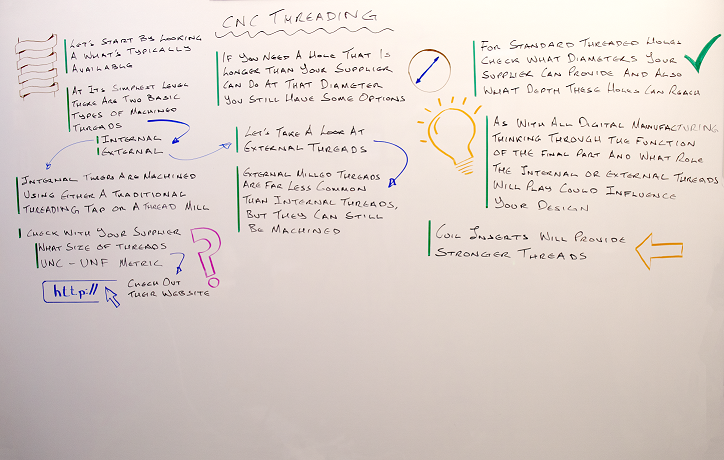 CNC THREADING
LET'S START BY LOOKING
A WHAT'S TYPICALLY
AVAILABLE
AT ITS SIMPLEST LEVEL
THERE ARE TWO BASIC
TYPES OF MACHINED
THREADS
INTERNAL
EXTERNAL
INTERNAL THREADS ARE MACHINED
USING EITHER A TRADITIONAL
THREADING TAP OR A THREAD MILL
CHECK WITH YOUR SUPPLIER
WHAT SIZE OF THREADS
UNC - UNF METRIC
?
http://
CHECK OUT
THEIR WEBSITE
IF YOU NEED A HOLE THAT IS
LONGER THAN YOUR SUPPLIER
CAN DO AT THAT DIAMETER
YOU STILL HAVE SOME OPTIONS
LET'S TAKE A LOOK AT
EXTERNAL THREADS
EXTERNAL MILLED THREADS
ARE FAR LESS COMMON
THAN INTERNAL THREADS,
BUT THEY CAN STILL
BE MACHINED
FOR STANDARD THREADED HOLES
CHECK WHAT DIAMETERS YOUR
SUPPLIER CAN PROVIDE AND ALSO
WHAT DEPTH THESE HOLES CAN REACH
AS WITH ALL DIGITAL MANUFACTURING,
THINKING THROUGH THE FUNCTION
OF THE FINAL PART AND WHAT ROLE
THE INTERNAL OR EXTERNAL THREADS
WILL PLAY COULD INFLUENCE
YOUR DESIGN
COIL INSERTS WILL PROVIDE
STRONGER THREADS